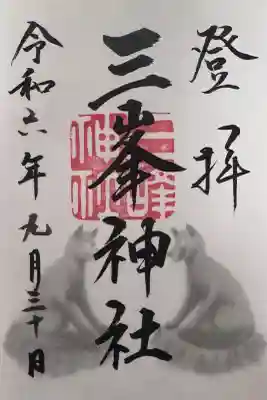 登拝
三峯神社
三峰神社
令和六年九月三十日